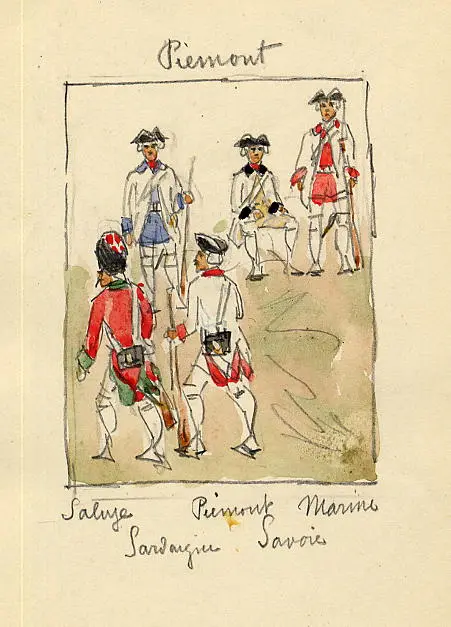 Piémont
Saluze Piémont Marine
Sardaigne Savoie